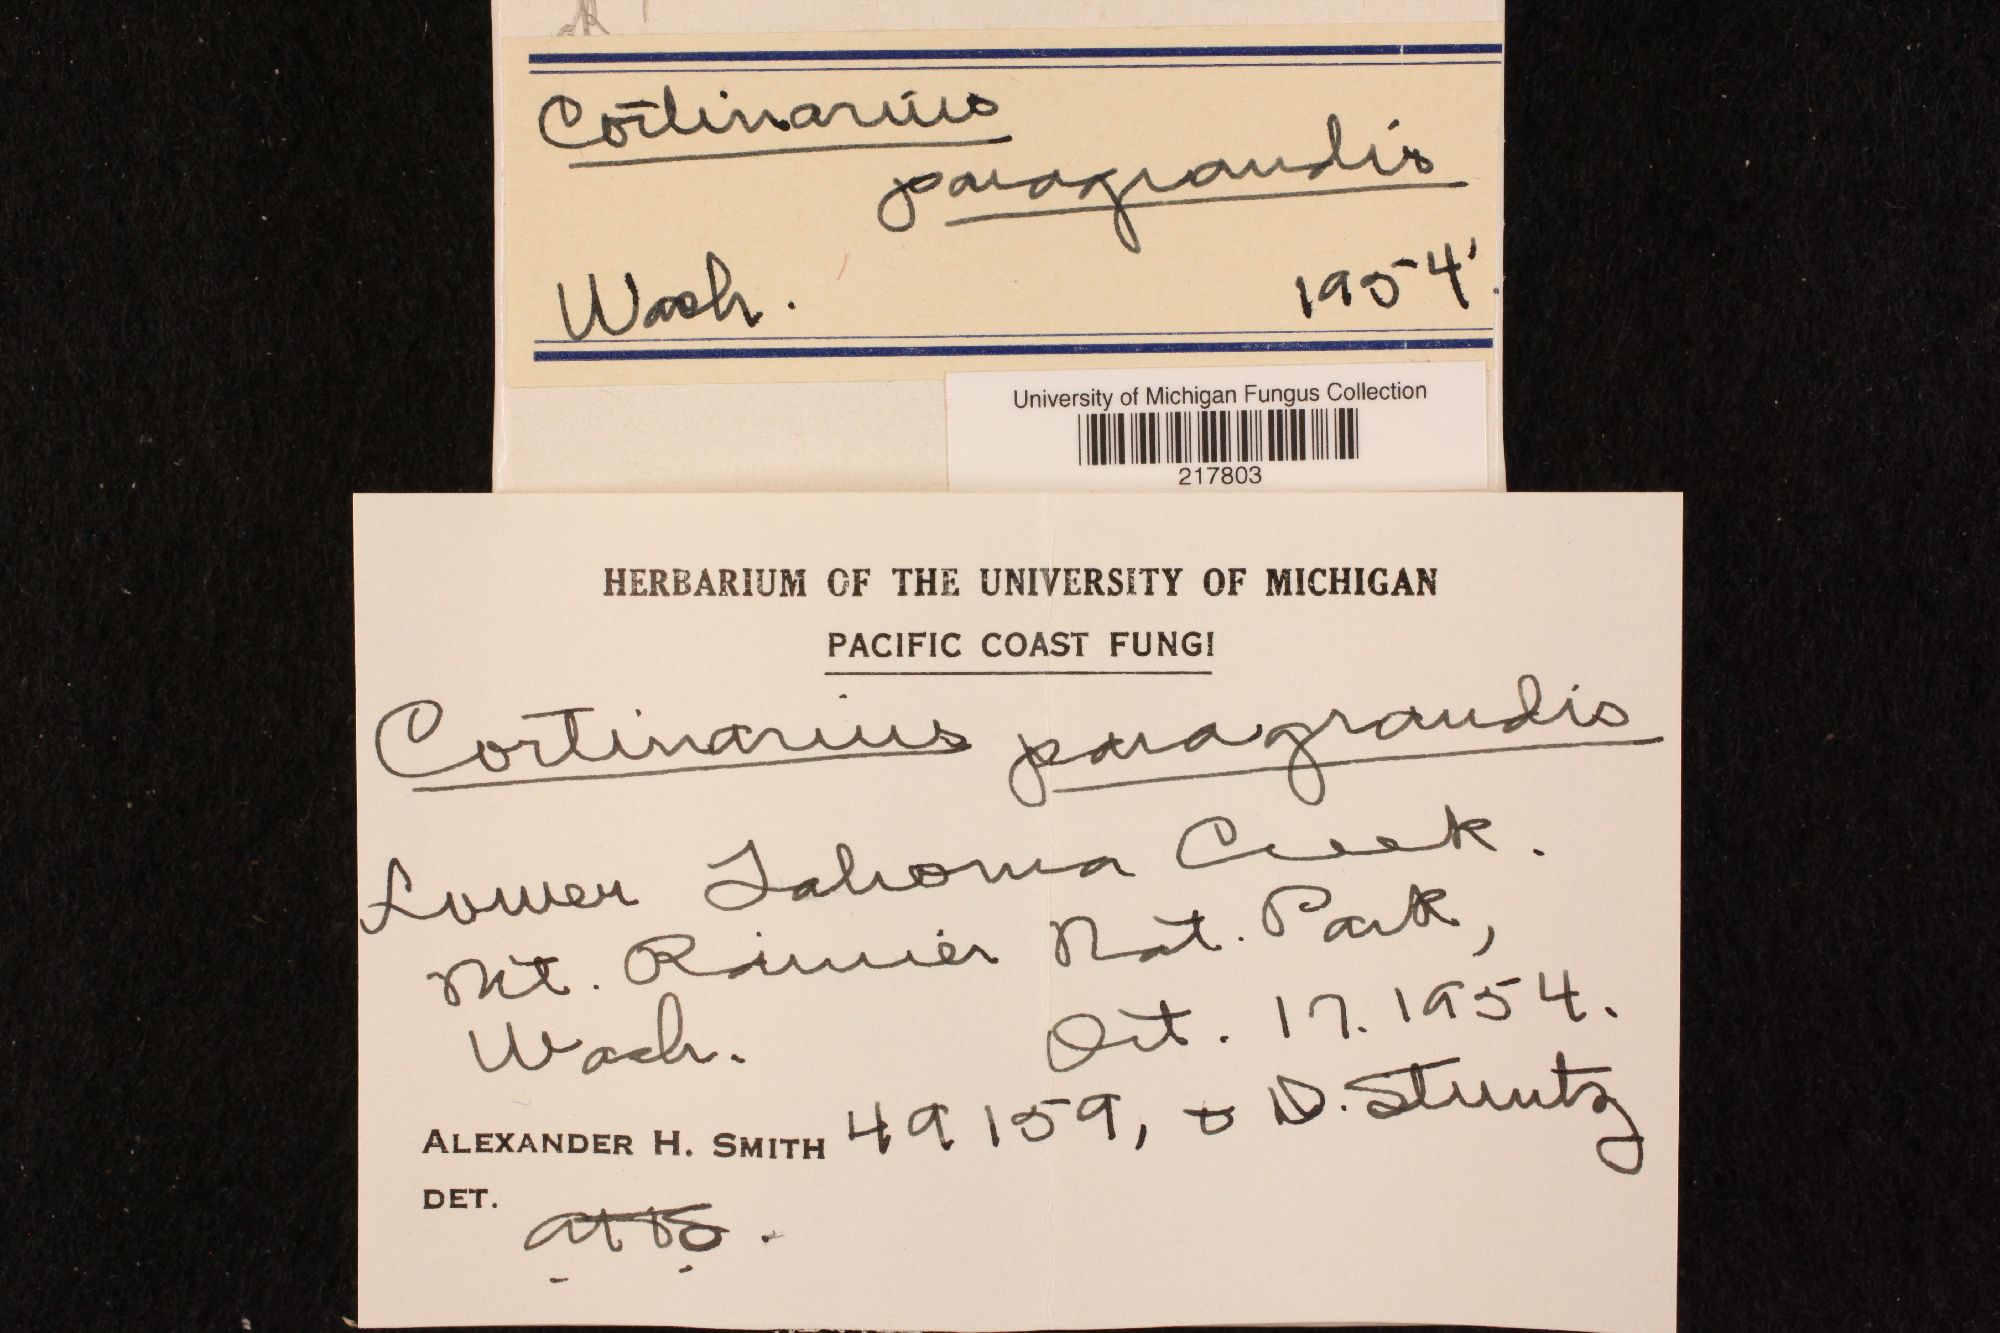 Cortinarius
paragrandis
Wash. 1954
University of Michigan Fungus Collection
217803
HERBARIUM OF THE UNIVERSITY OF MICHIGAN
PACIFIC COAST FUNGI
Cortinarius paragrandis
Lower Tahoma Creek.
Mt. Rainier Nat. Park,
Wash. Oct. 17. 1954.
ALEXANDER H. SMITH 49159, & D. Stuntz
DET. AHS.